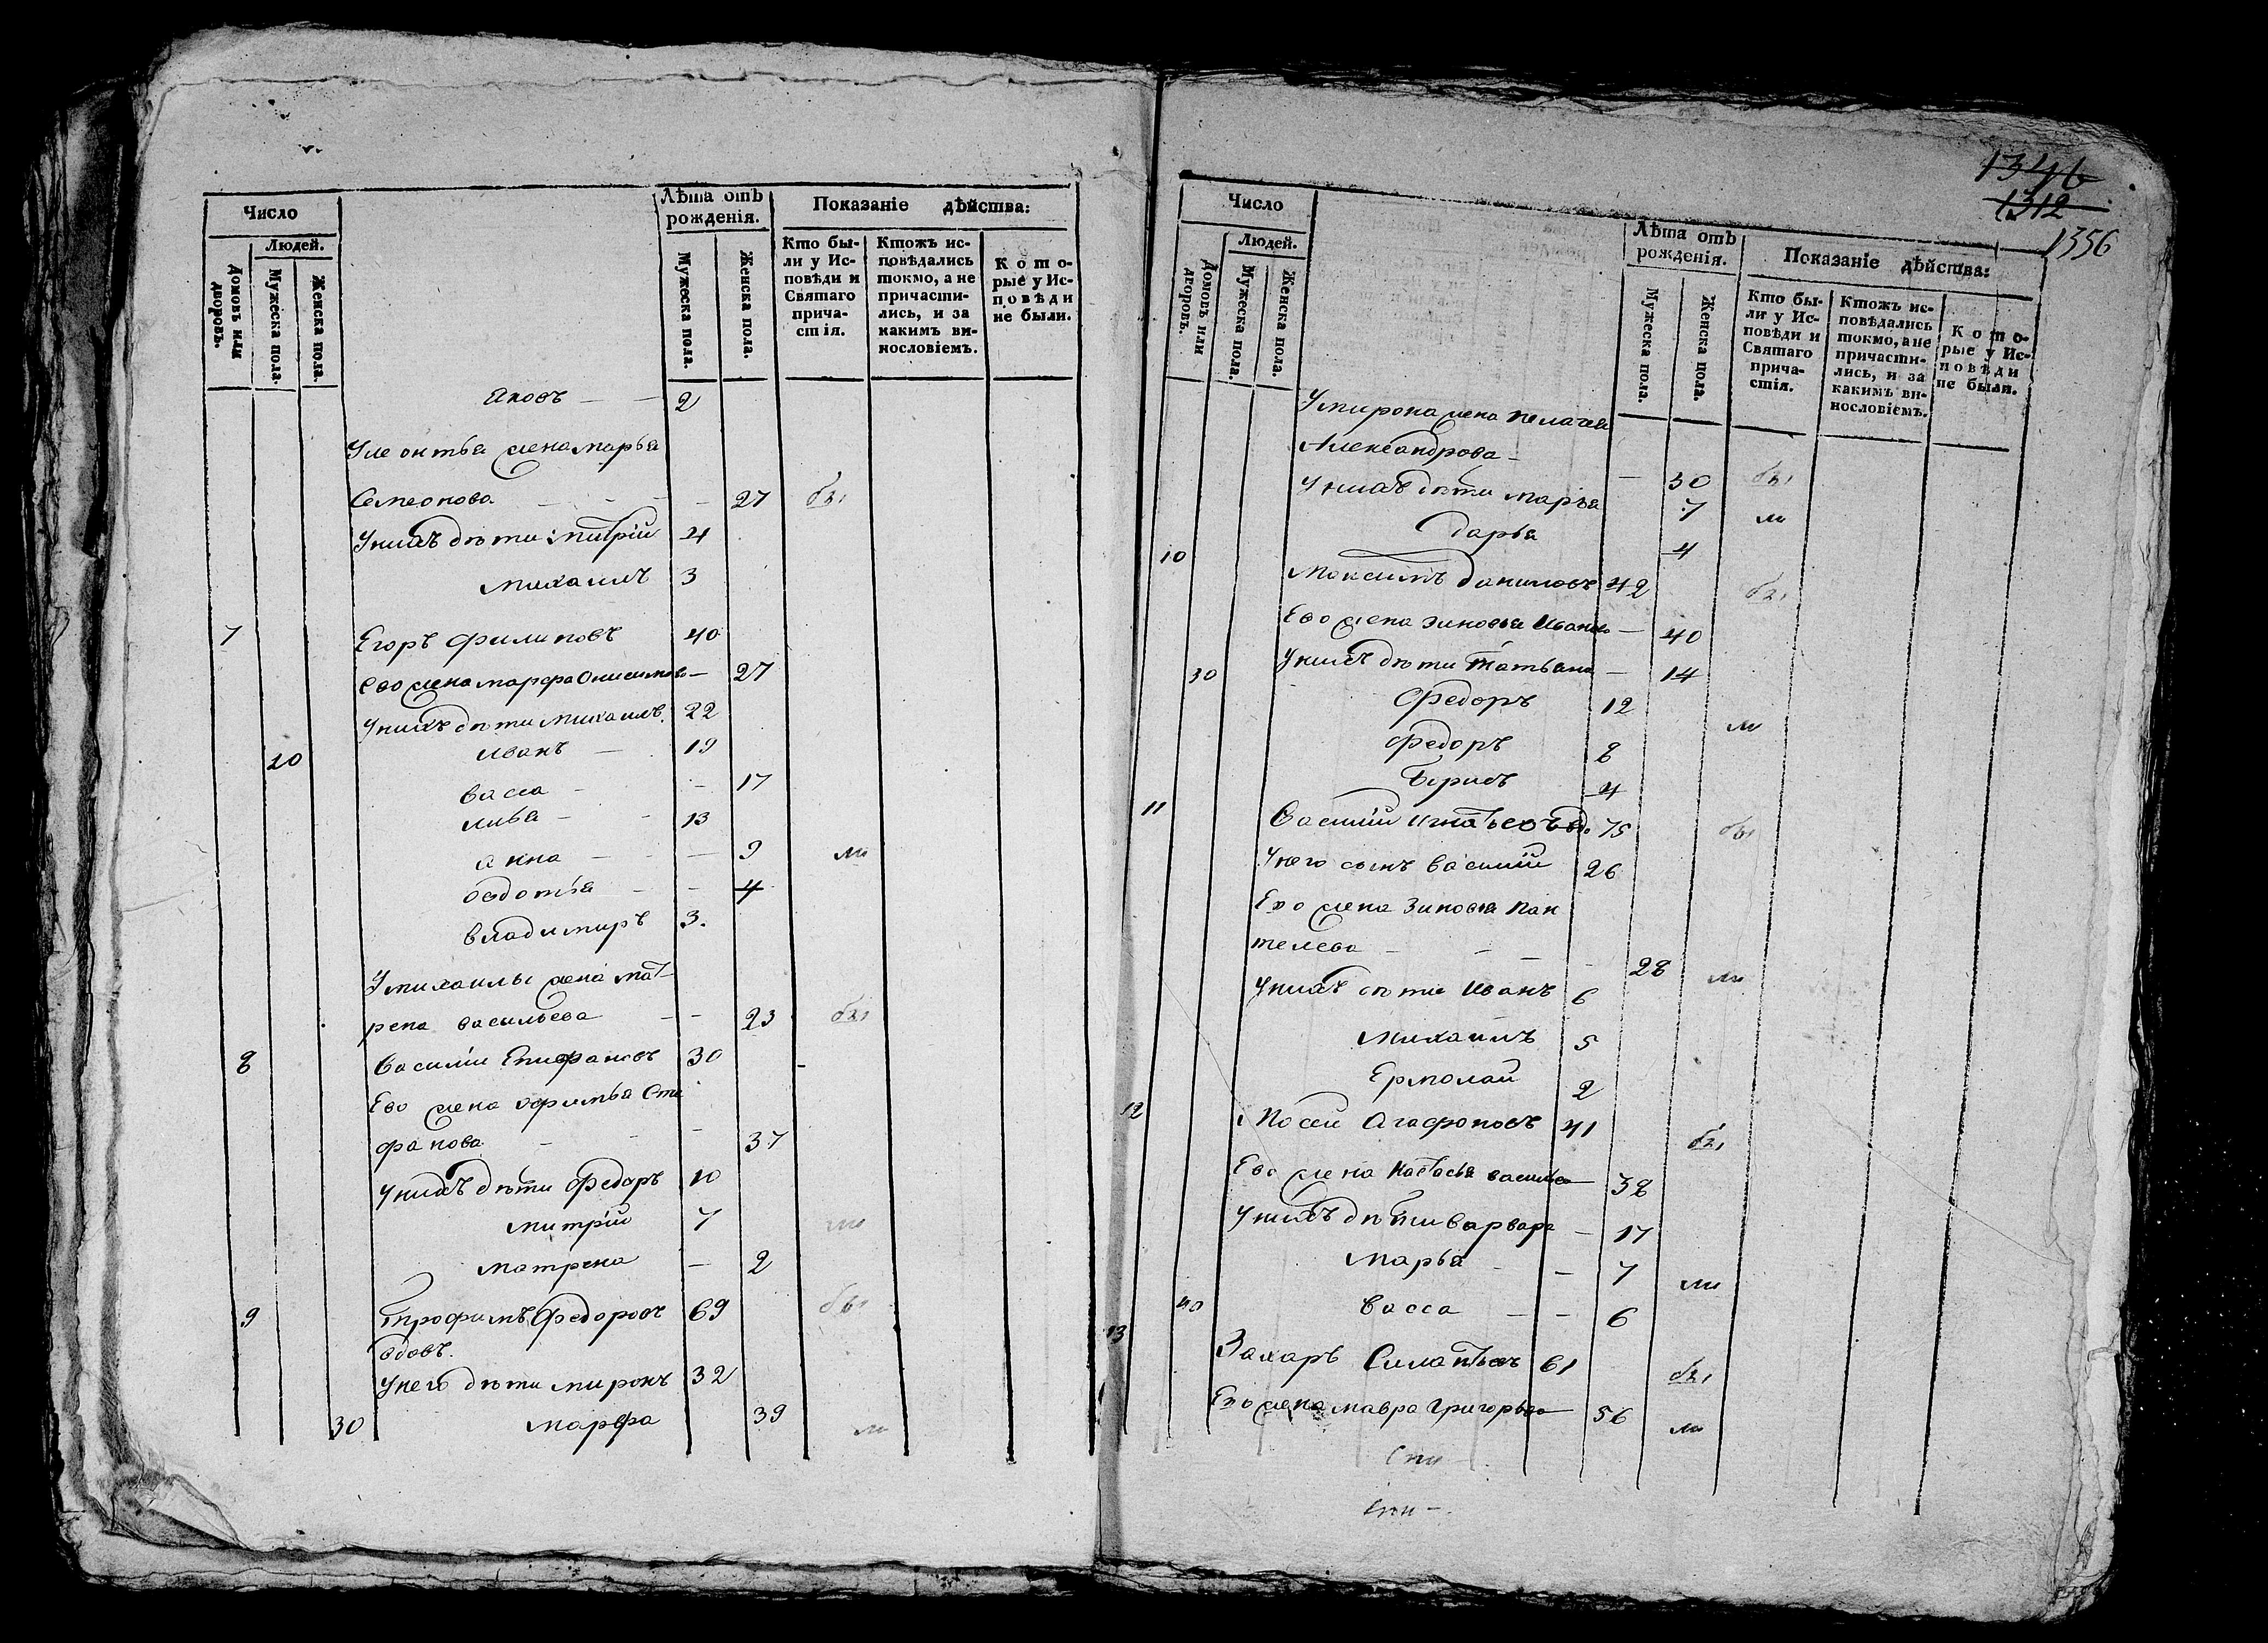 Число
Лѣта отъ рожденія.
Показаніе дѣйства:
Людей.
Домовъ или дворовъ.
Мужеска пола.
Женска пола.
Мужеска пола.
Женска пола.
Кто бы-
ли у Ис-
повѣди и
Святаго
прича-
стія.
Ктожъ ис-
повѣдались
токмо, а не
причасти-
лись, и за
какимъ ви-
нословіемъ.
Кото-
рые у Ис-
повѣди
не были.
Яковъ — — 2
У леонтья жена марья
Семеонова — — 27 бы
У нихъ дѣти: митрій 4
михаилъ 3
7 Егоръ филиповъ 40
ево жена марфа Онисимова — 27
У нихъ дѣти михаилъ 22
20 иванъ — 19
васса — — 17
илья — — 13
анна — — 9 ли
овдотья — — 4
владимиръ 3.
У михаилы жена мат-
рена васильева — — 23 бы
8 Василій Епифановъ 30
Ево жена ефимья Сте
фанова — — 37
У нихъ дѣти Федоръ 10
митрій 7 ли
матрена — 2
9 Трофимъ Федоровъ 69 бы
вдовъ.
У него дѣти миронъ 32
30 марфа 39 ли
1346
1312
1356
Число
Лѣта отъ рожденія.
Показаніе дѣйства:
Людей.
Домовъ или дворовъ.
Мужеска пола.
Женска пола.
Мужеска пола.
Женска пола.
Кто бы-
ли у Ис-
повѣди и
Святаго
прича-
стія.
Ктожъ ис-
повѣдались
токмо, а не
причасти-
лись, и за
какимъ ви-
нословіемъ.
Кото-
рые у Ис-
повѣди
не были.
У мирона жена пелагея
Александрова — — 30 бы
У нихъ дѣти марья 7 ли
дарья 4
10 Максимъ даниловъ 42 бы
Ево жена зиновья Иванова — 40
30 У нихъ дѣти татьяна — 14
Федоръ 12 ли
федоръ 8
борисъ 4
11 Василій игнатьевъ вдо. 75 бы
У него сынъ василій 26
Ево жена Зиновья Пан
телева — — — 28 ли
У нихъ дѣти Иванъ 6
Михаилъ 5
Ермолай 2
12 Мосей Агафоновъ 41 бы
Ево жена настасья васильева 38
У нихъ дѣти варвара — 17
Марья — — 7 ли
40 васса — — 6
13 Захаръ Силантьевъ 61 бы
Ево жена мавра григорьева 56 ли